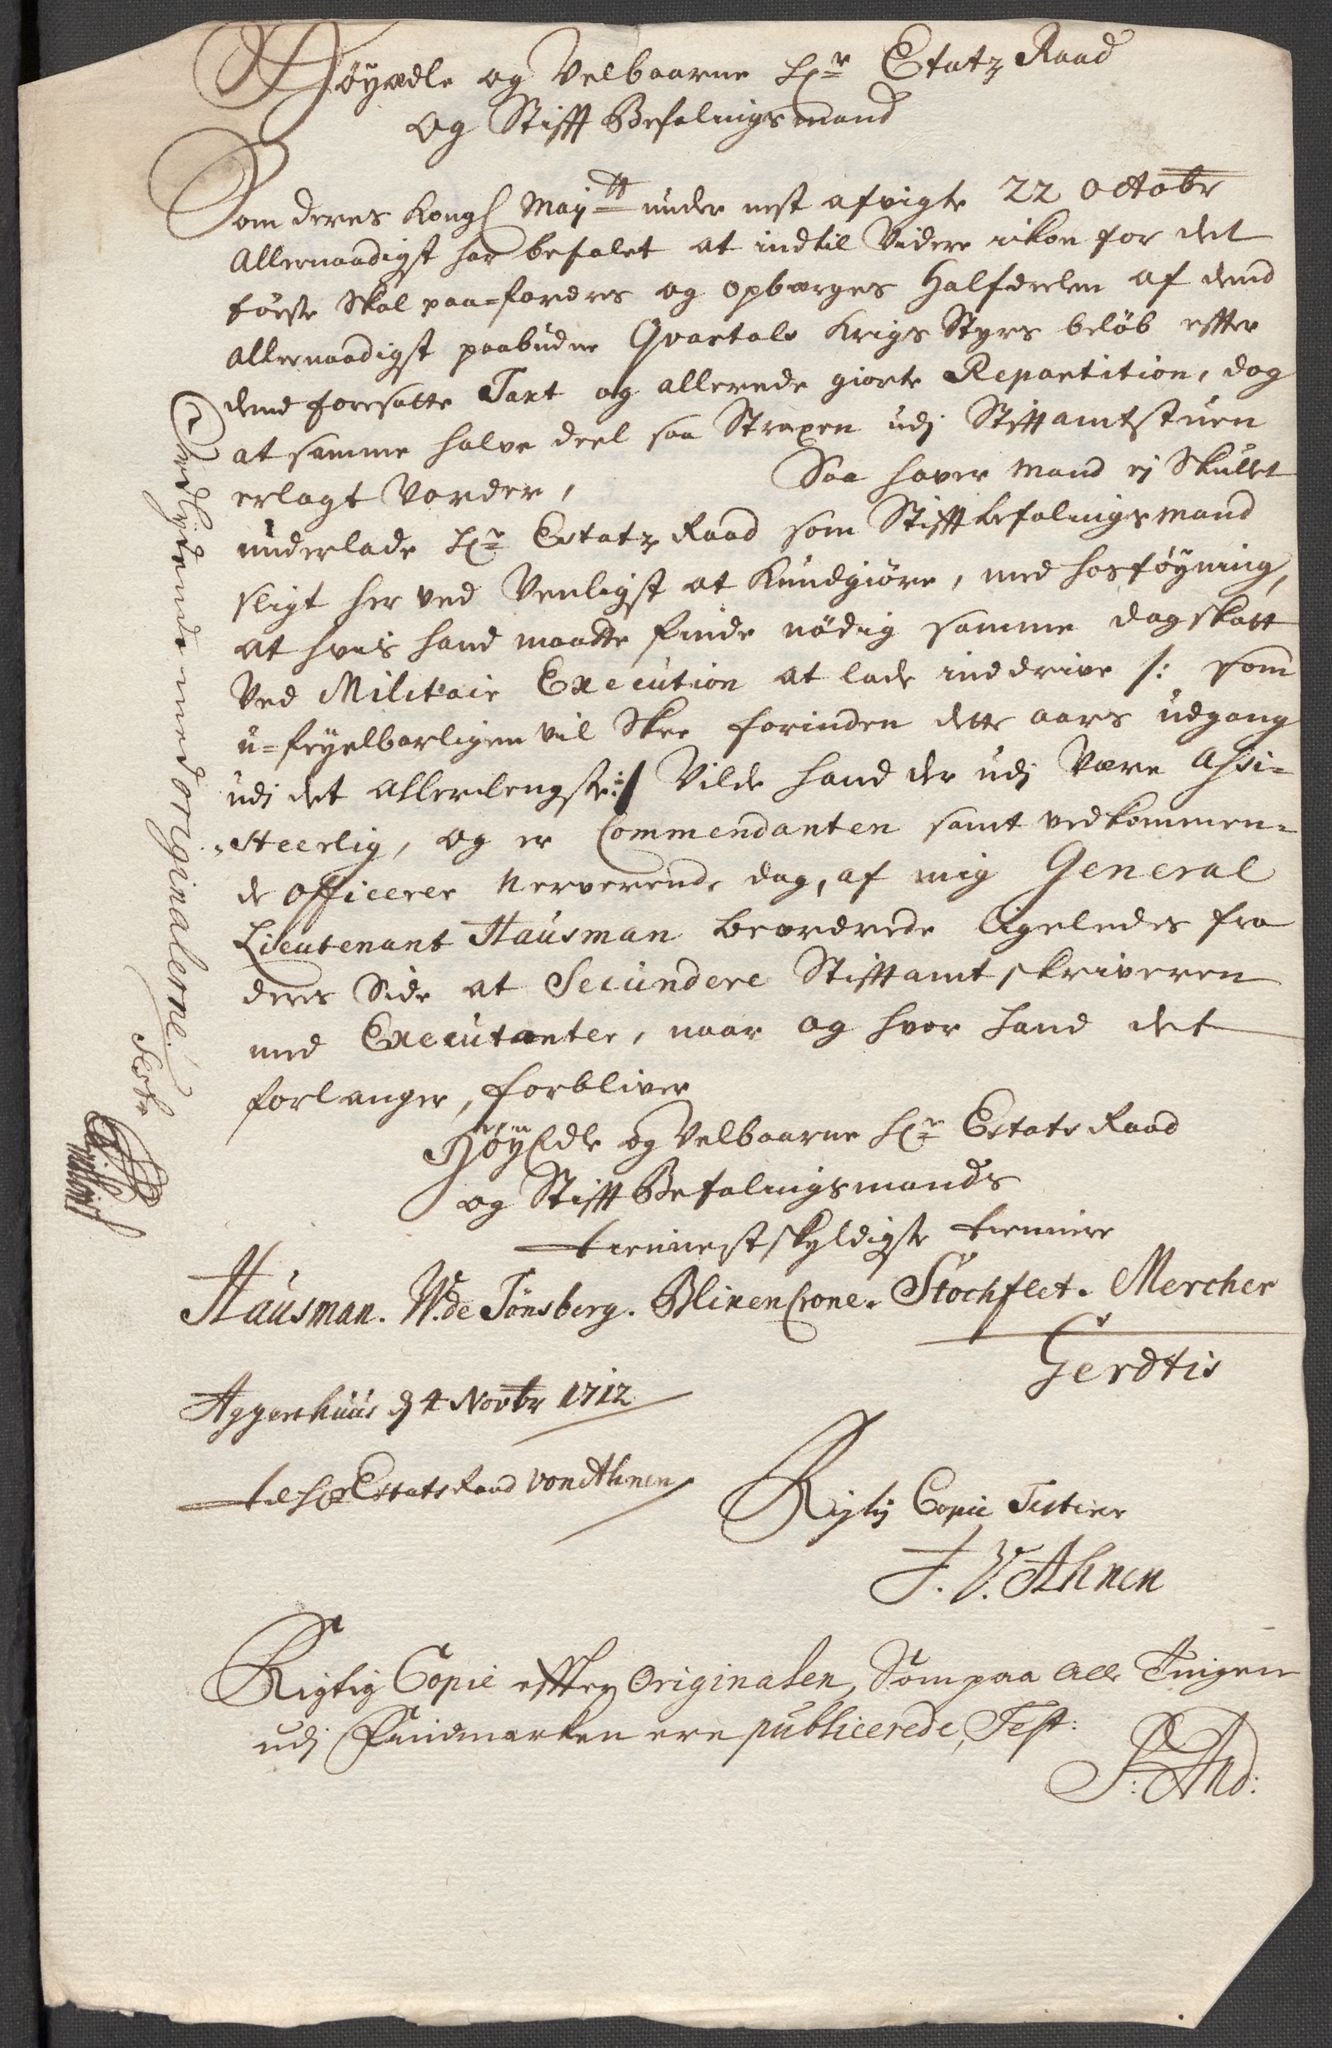 Høyædle og Velbaarne Hr Etatz Raad
og Stifft Befalingsmand
Som deres Kongl Maytt under nest afvigte 22 octobr
Allernaadigst har befalet at indtil Videre ickon for det
første Skal paa-fordres og opbærges Halfdeelen af dend
allernaadigst paabudne Qvartals Krigs Styrs beløb effter
dend foresatte Taxt og allerede giorte Repartition, dog
at samme halve deel saa Straxen udj Stifftamtstuen
erlagt Vorder, Saa haver mand ej Skullet
underlade Hr Estatz Raad som Stifftbefalingsmand
sligt her ved Venligst at Kundgiøre, med hosføyning,
at hvis hand maatte finde nødig samme dagskatt
Ved Militair Execution at lade inddrive /: som
u-feyelbarligen vil Skee forinden dette aars udgang
udj det allerlengste :/ Vilde hand der udj Være Assi-
steerlig, og er Commendanten samt vedkommen-
de officerer nerverende dag, af mig General
Lieutenant Hausman beordrede ligeledes fra
deres Side at Secundere Stifftamtskriveren
med Executanter, naar og hvor hand det
forlanger, forbliver
HøyEdle og Velbaarne Hr Estats Raad
og Stifft Befalingsmands
tienestskyldigste tiennere
Hausman. W. de Tønsberg. BlixenCrone. Stochflet. Mercher
Gerdtis
Aggershuus d 4 Novbr 1712
til Hr Estats Raad von Ahnen
Rigtig Copie Testerer
F. V. Ahnen
Rigtig Copie effter Originalen, Som paa alle Tingen
udj Findmarken ere publicerede, Test:
Ligelydende med originalerne.